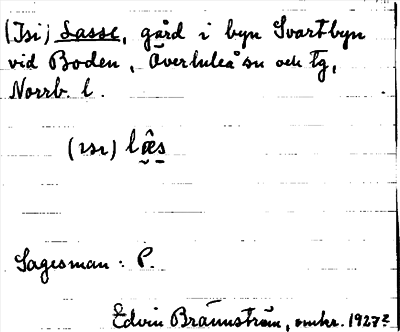 (Isi) Lasse, gård i byn Svartbyn
vid Boden, Överluleå sn och tg,
Norrb. l.
(ısı) læ̂s
Sagesman: P.
Edvin Brännström, omkr. 1927?